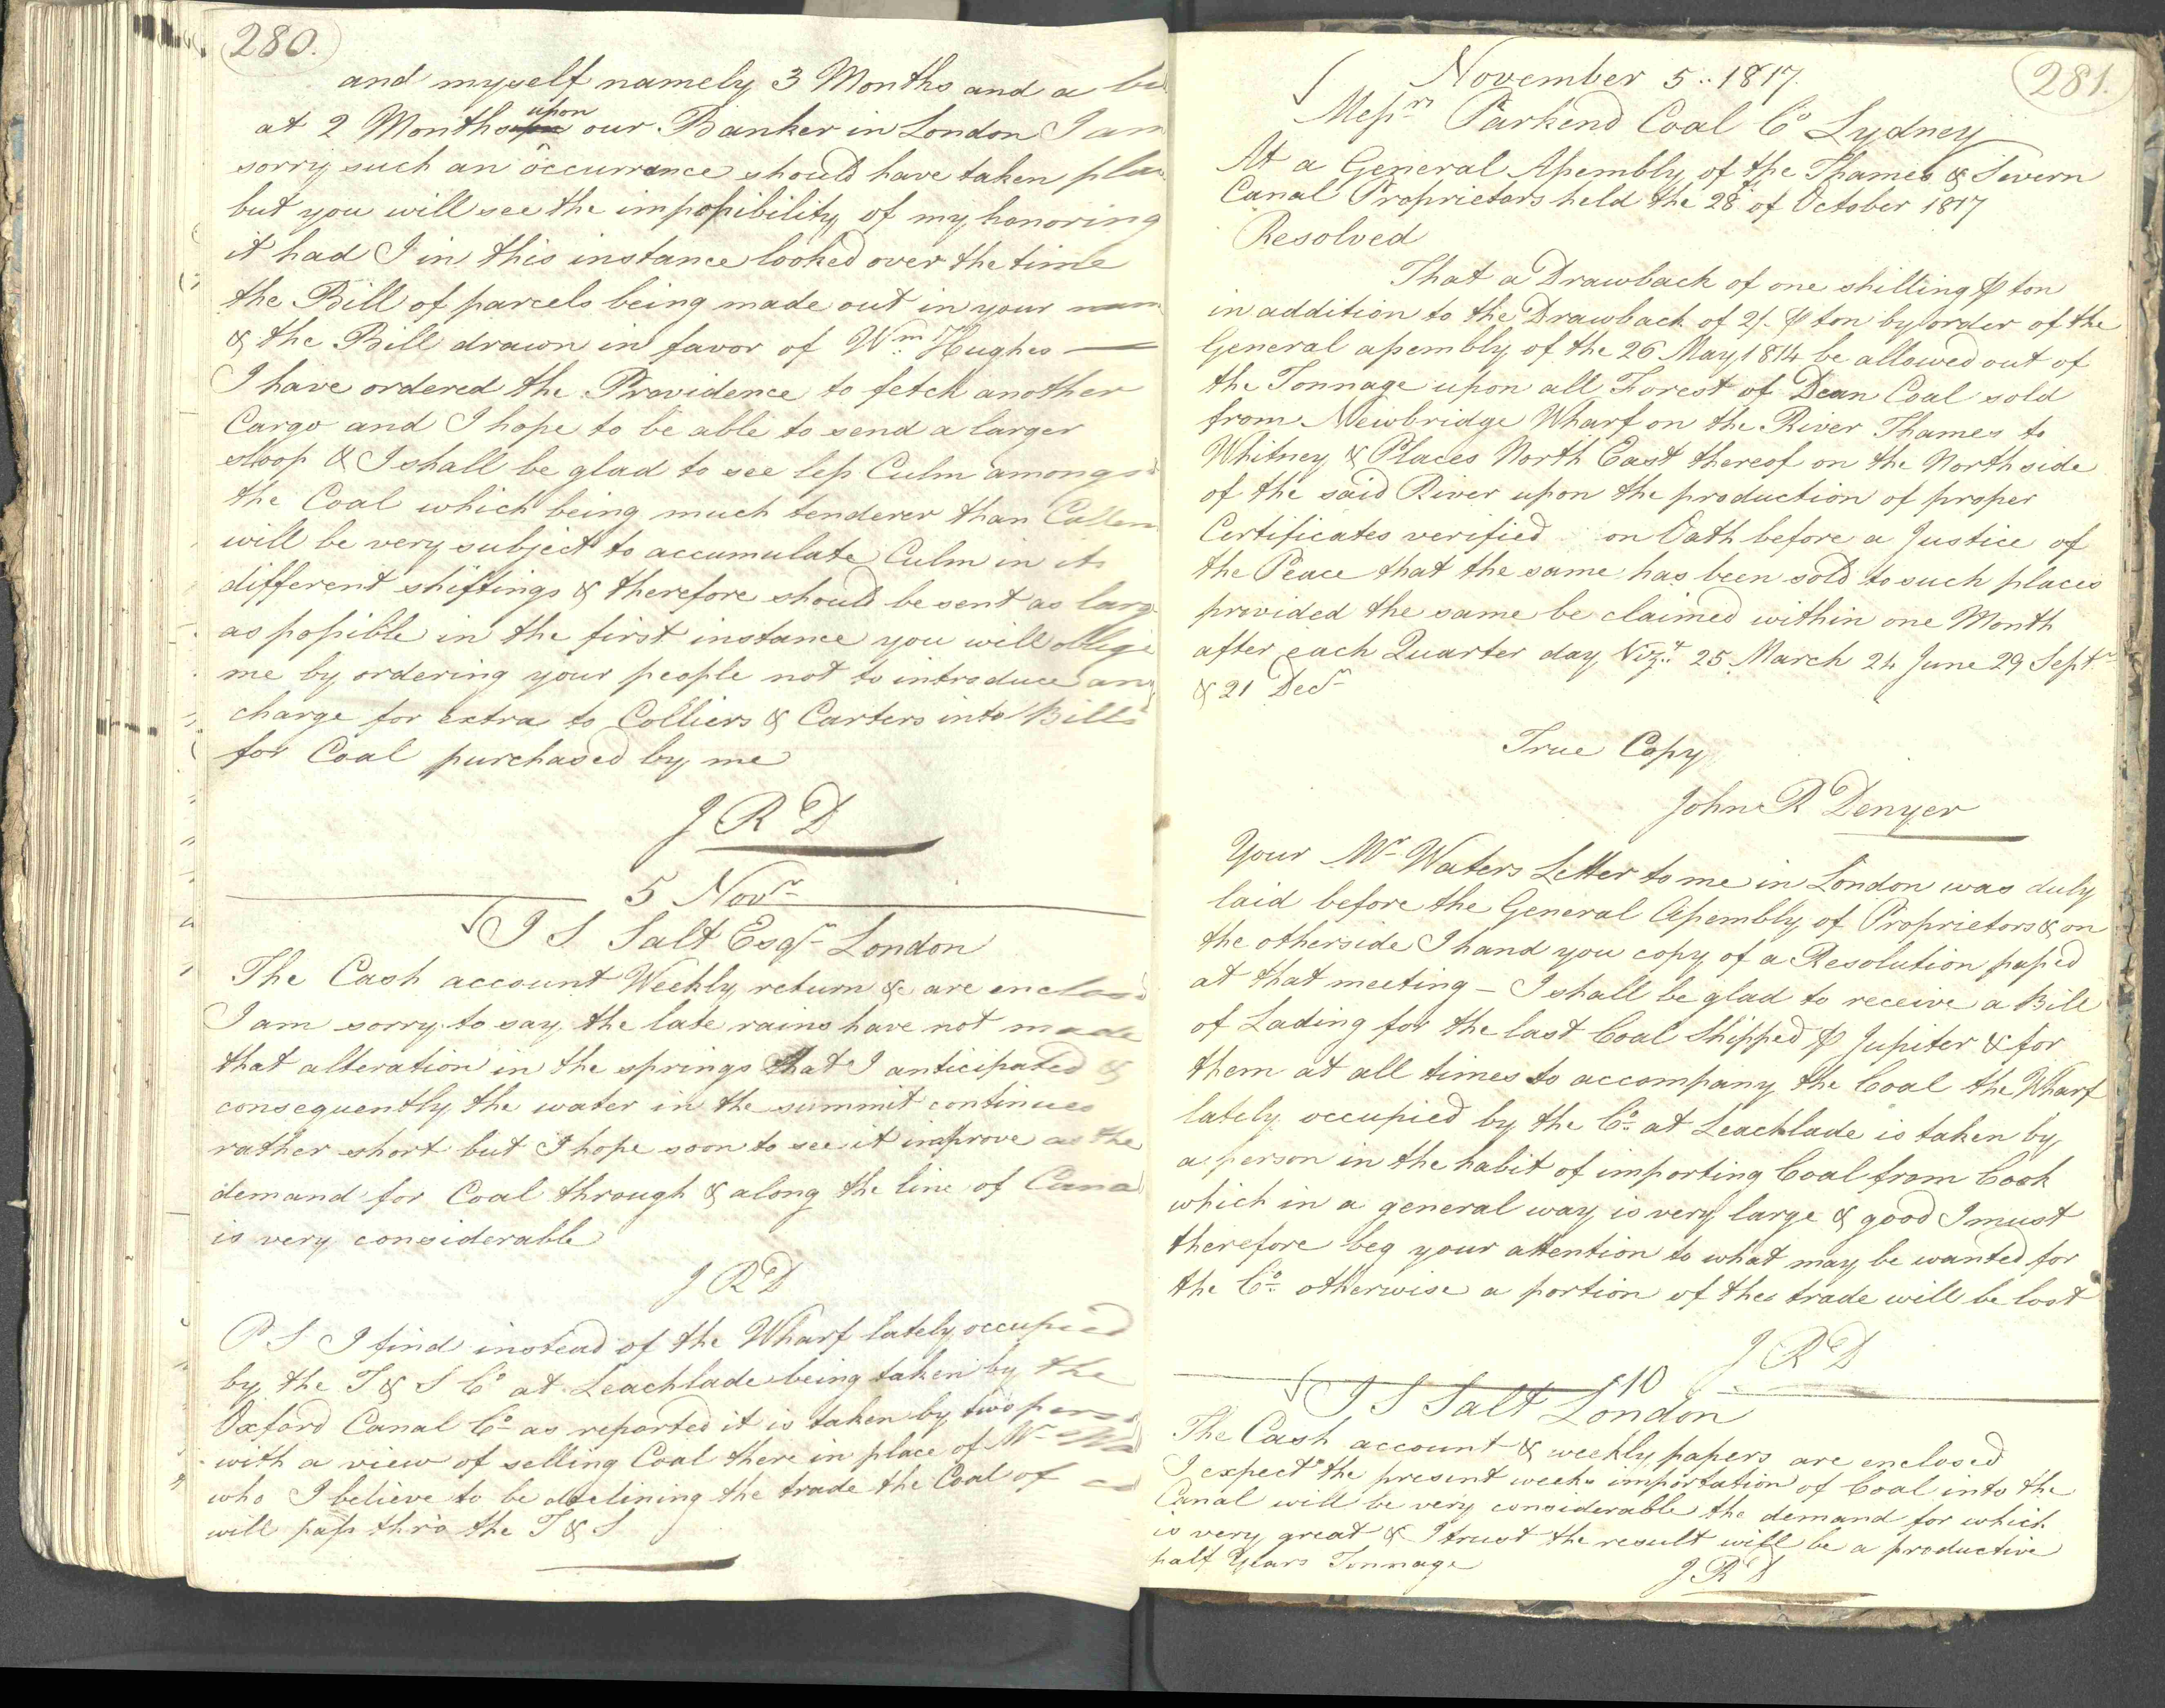 280.
and myself namely 3 Months and a
at 2 Months upon our Banker in London I am
sorry such an occurrance should have taken place
but you will see the impossibility of my honoring
it had I in this instance looked over the time
the Bill of parcels being made out in your name
& the Bill drawn in favor of Wm Hughes —
I have ordered the Providence to fetch another
Cargo and I hope to be able to send a larger
sloop & I shall be glad to see less Culm amongst
the Coal which being much tenderer than
will be very subject to accumulate Culm in its
different shiftings & therefore should be sent as large
as possible in the first instance you will oblige
me by ordering your people not to introduce any
charge for extra to Colliers & Carters into Bills
for Coal purchased by me
J R D
5 Novr
I S Salt Esqr London
The Cash account Weekly return &c are enclosed
I am sorry to say the late rains have not made
that alteration in the springs that I anticipated &
consequently the water in the summit continues
rather short but I hope soon to see it improve as the
demand for Coal through & along the line of Canal
is very considerable
J R D
P S I find instead of the Wharf lately occupied
by the T & S Co at Leachlade being taken by the
Oxford Canal Co as reported it is taken by two persons
with a view of selling Coal there in place of Mr
who I believe to be declining the trade the Coal of
will pass thro the T & S
281.
November 5.. 1817.
Messrs Parkend Coal Co Lydney
At a General Assembly of the Thames & Severn
Canal Proprietors held the 28th of October 1817
Resolved
That a Drawback of one shilling ⅌ ton
in addition to the Drawback of 2/- ⅌ ton by order of the
General assembly of the 26 May 1814 be allowed out of
the Tonnage upon all Forest of Dean Coal sold
from Newbridge Wharf on the River Thames to
Whitney & Places North East thereof on the North side
of the said River upon the production of proper
Certificates verified on Oath before a Justice of
the Peace that the same has been sold to such places
provided the same be claimed within one Month
after each Quarter day Vizt 25 March 24 June 29 Septr
& 21 Decr
True Copy
John R Denyer
Your Mr Waters Letter to me in London was duly
laid before the General Assembly of Proprietors & on
the otherside I hand you copy of a Resolution passed
at that meeting – I shall be glad to receive a Bill
of Lading for the last Coal Shipped ⅌ Jupiter & for
them at all times to accompany the Coal the Wharf
lately occupied by the Co at Leachlade is taken by
a person in the habit of importing Coal from Cook
which in a general way is very large & good I must
therefore beg your attention to what may be wanted for
the Co otherwise a portion of the trade will be lost
J R D
10
I S Salt London
The Cash account & weekly papers are enclosed
I expect the present weeks importation of Coal into the
Canal will be very considerable the demand for which
is very great & I trust the result will be a productive
half Years Tonnage
J R D